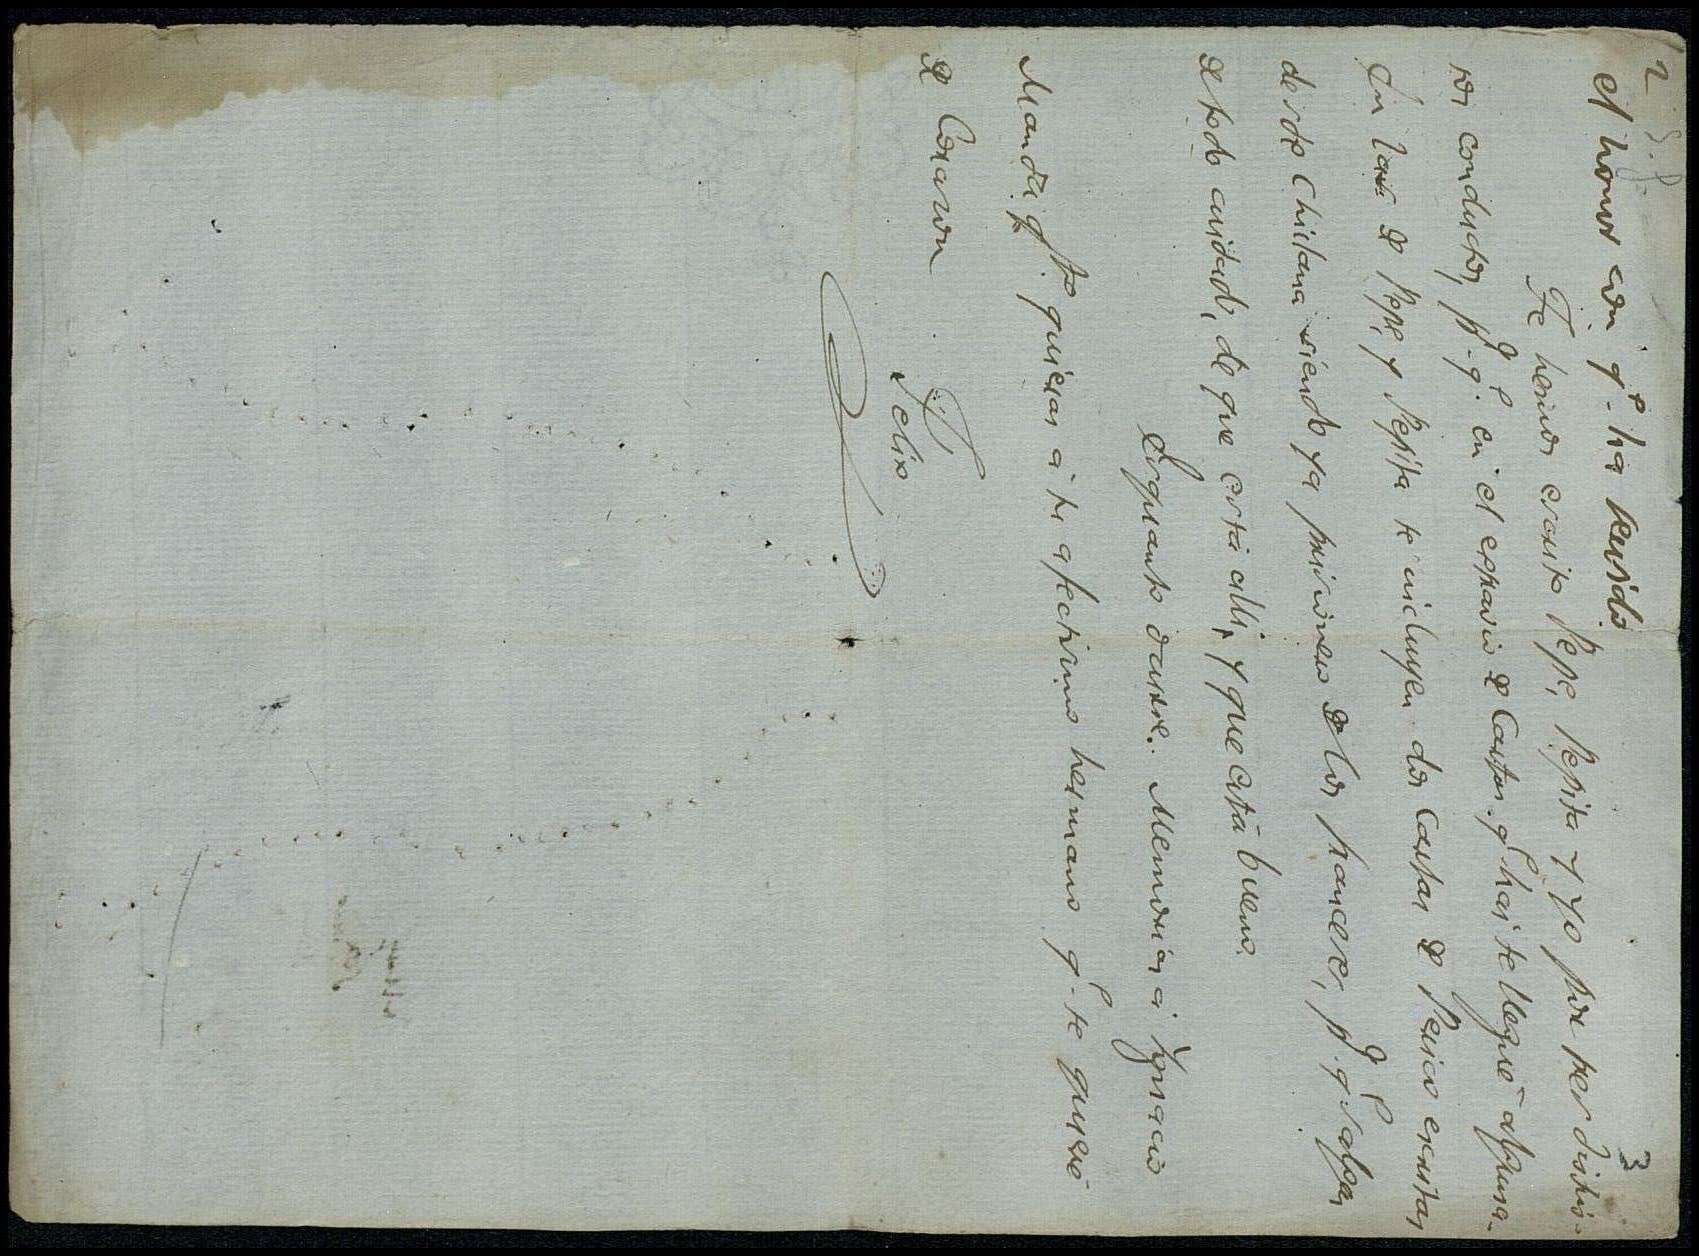 2
3
el honor con q.e ha rendido.
Te hemos escrito Pepe, Pepita y yo por tres distin-
tos conductos, p.a q.e en el espacio de Cartas q.e hai te llegue alguna.
En las de Pepe, y Pepita te incluyen dos Cartas de Perico escritas
desde Chiclana siendo ya prisionero de los franceses, p.a q.e salgas
de todo cuidado, de que está alli, y que está bueno.
Memorias a Ygnacio
Manda q.to quieras a tu afectisimo hermano q.e te quiere
de Corazon
Felix